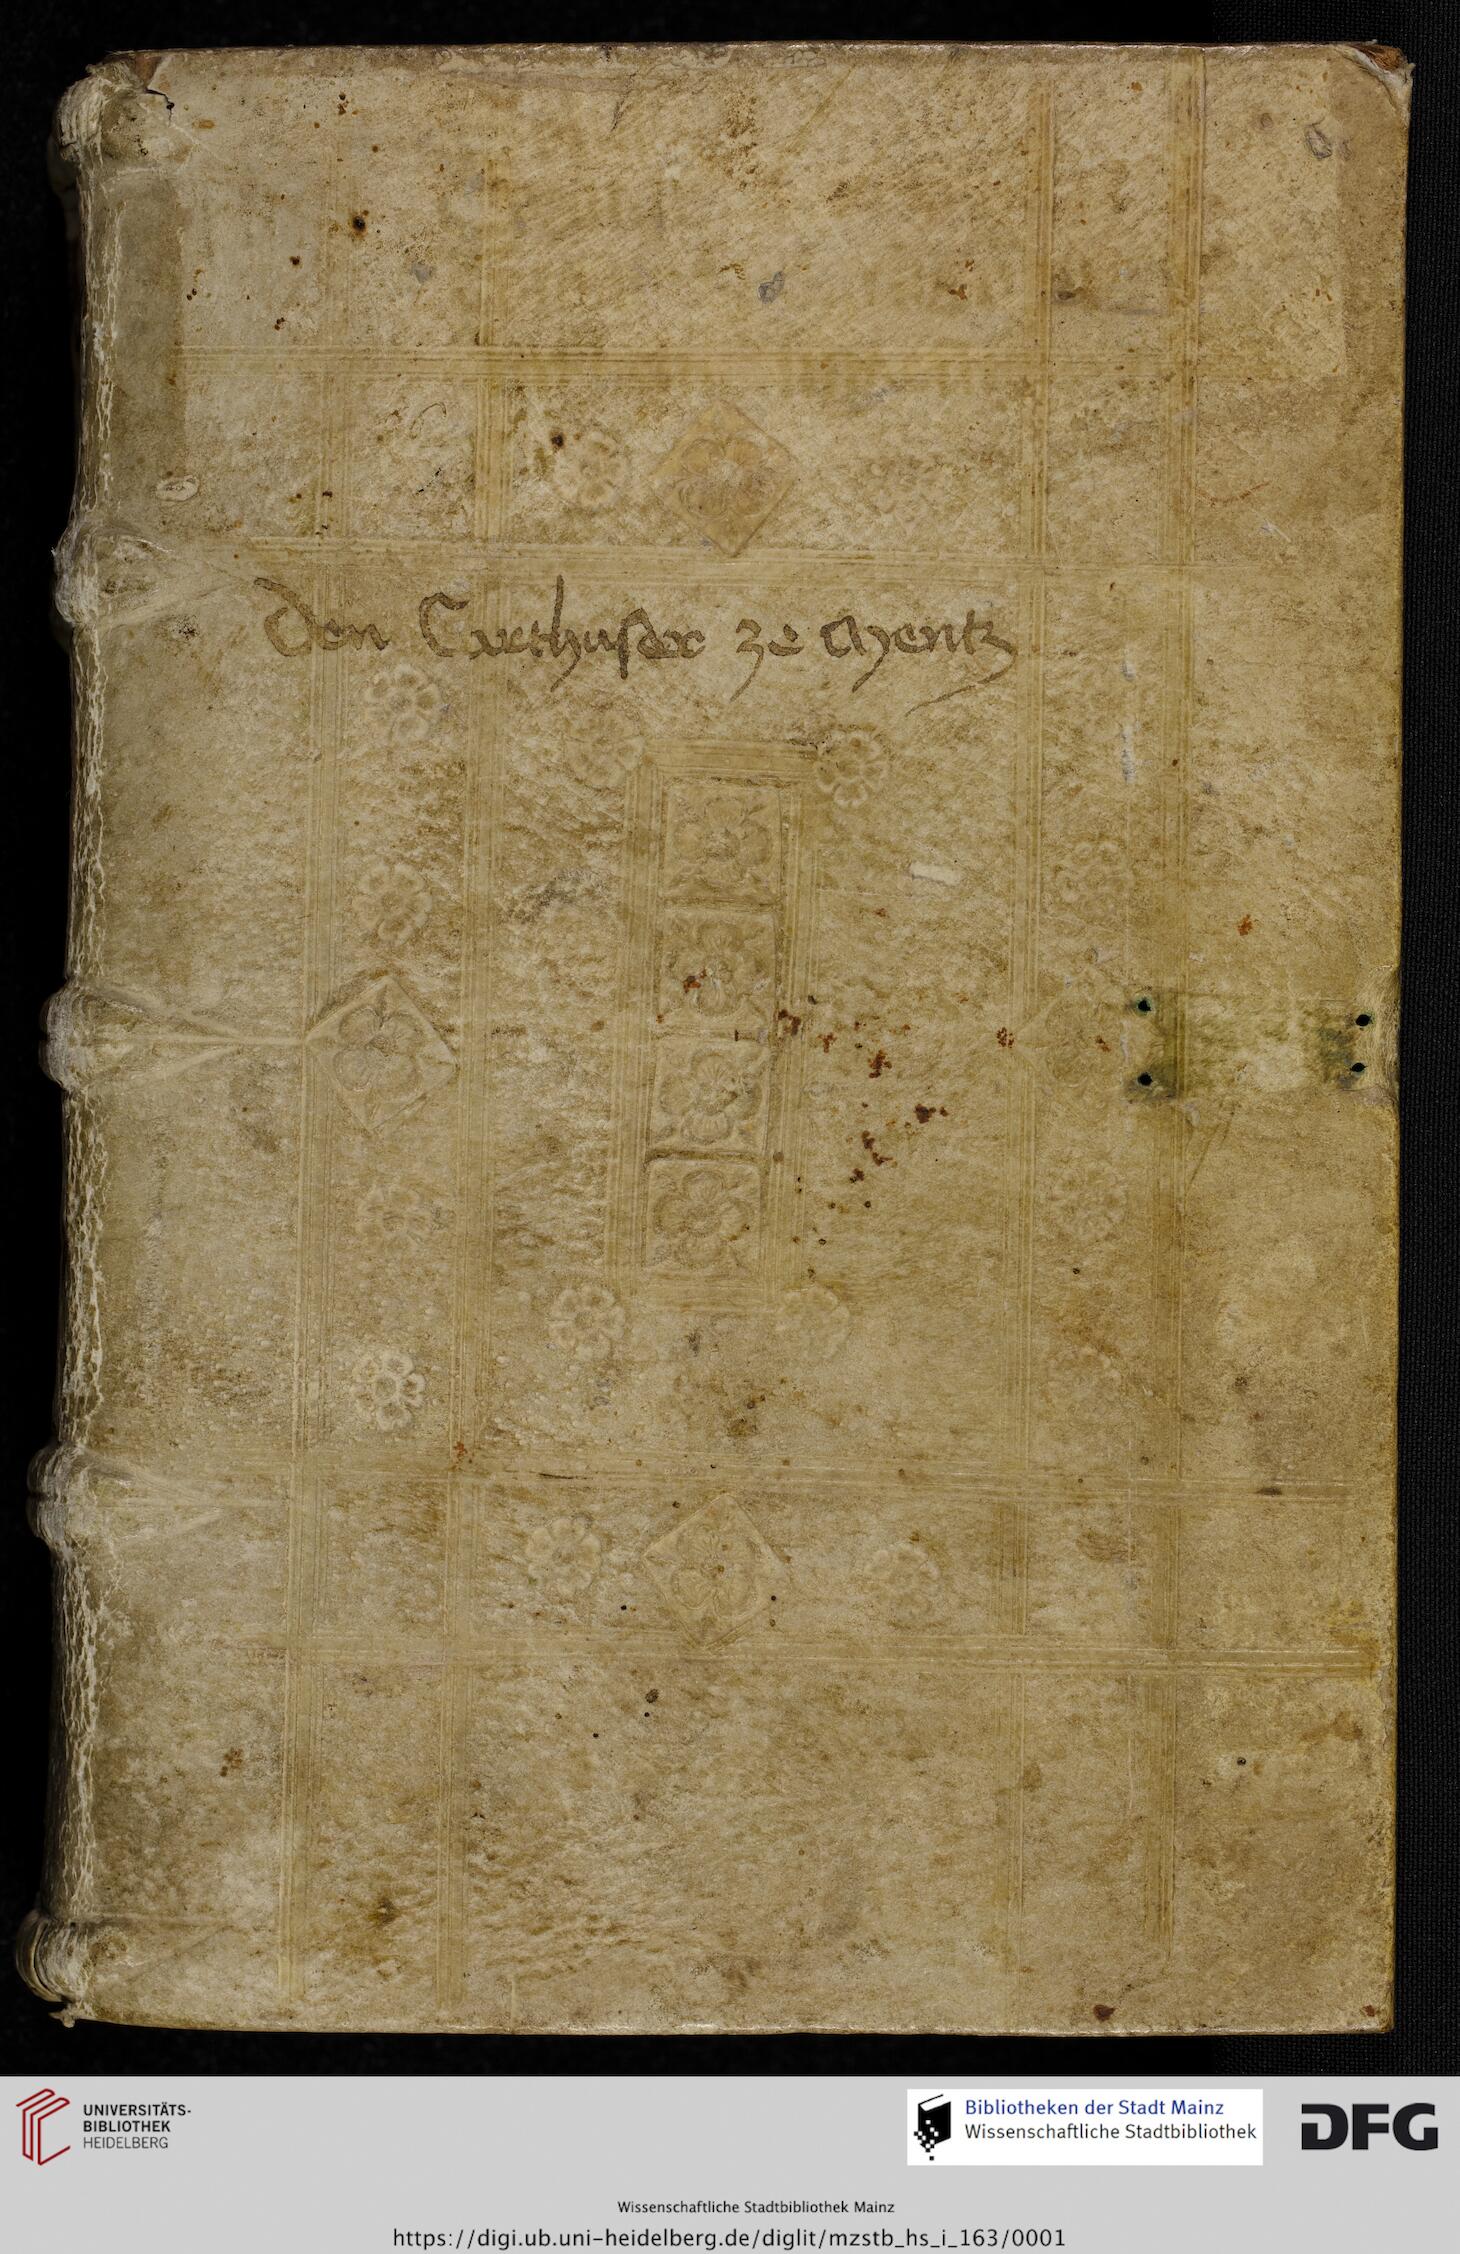 Den Carthuser ze Mentz
UNIVERSITÄTS-
BIBLIOTHEK
HEIDELBERG
Bibliotheken der Stadt Mainz
Wissenschaftliche Stadtbibliothek
DFG
Wissenschaftliche Stadtbibliothek Mainz
https://digi.ub.uni-heidelberg.de/diglit/mzstb_hs_i_163/0001